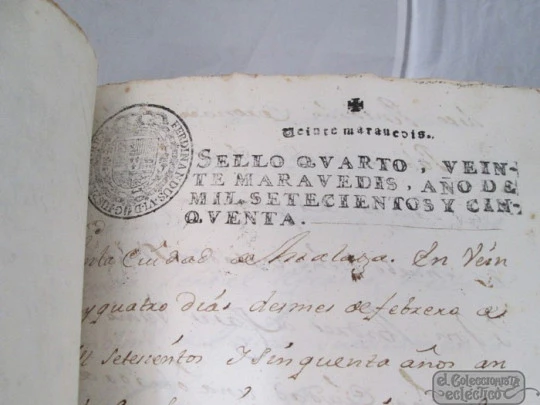 Veinte marauedis.
SELLO QVARTO, VEIN-
TE MARAVEDIS, AÑO DE
MIL SETECIENTOS Y CIN-
QVENTA.
FERDINANDUS VI D G
Ciudad de Malaga. En Vein
yquatro dias delmes de febrero de
setesientos Ysinquenta años an
el Coleccionista
ecléctico